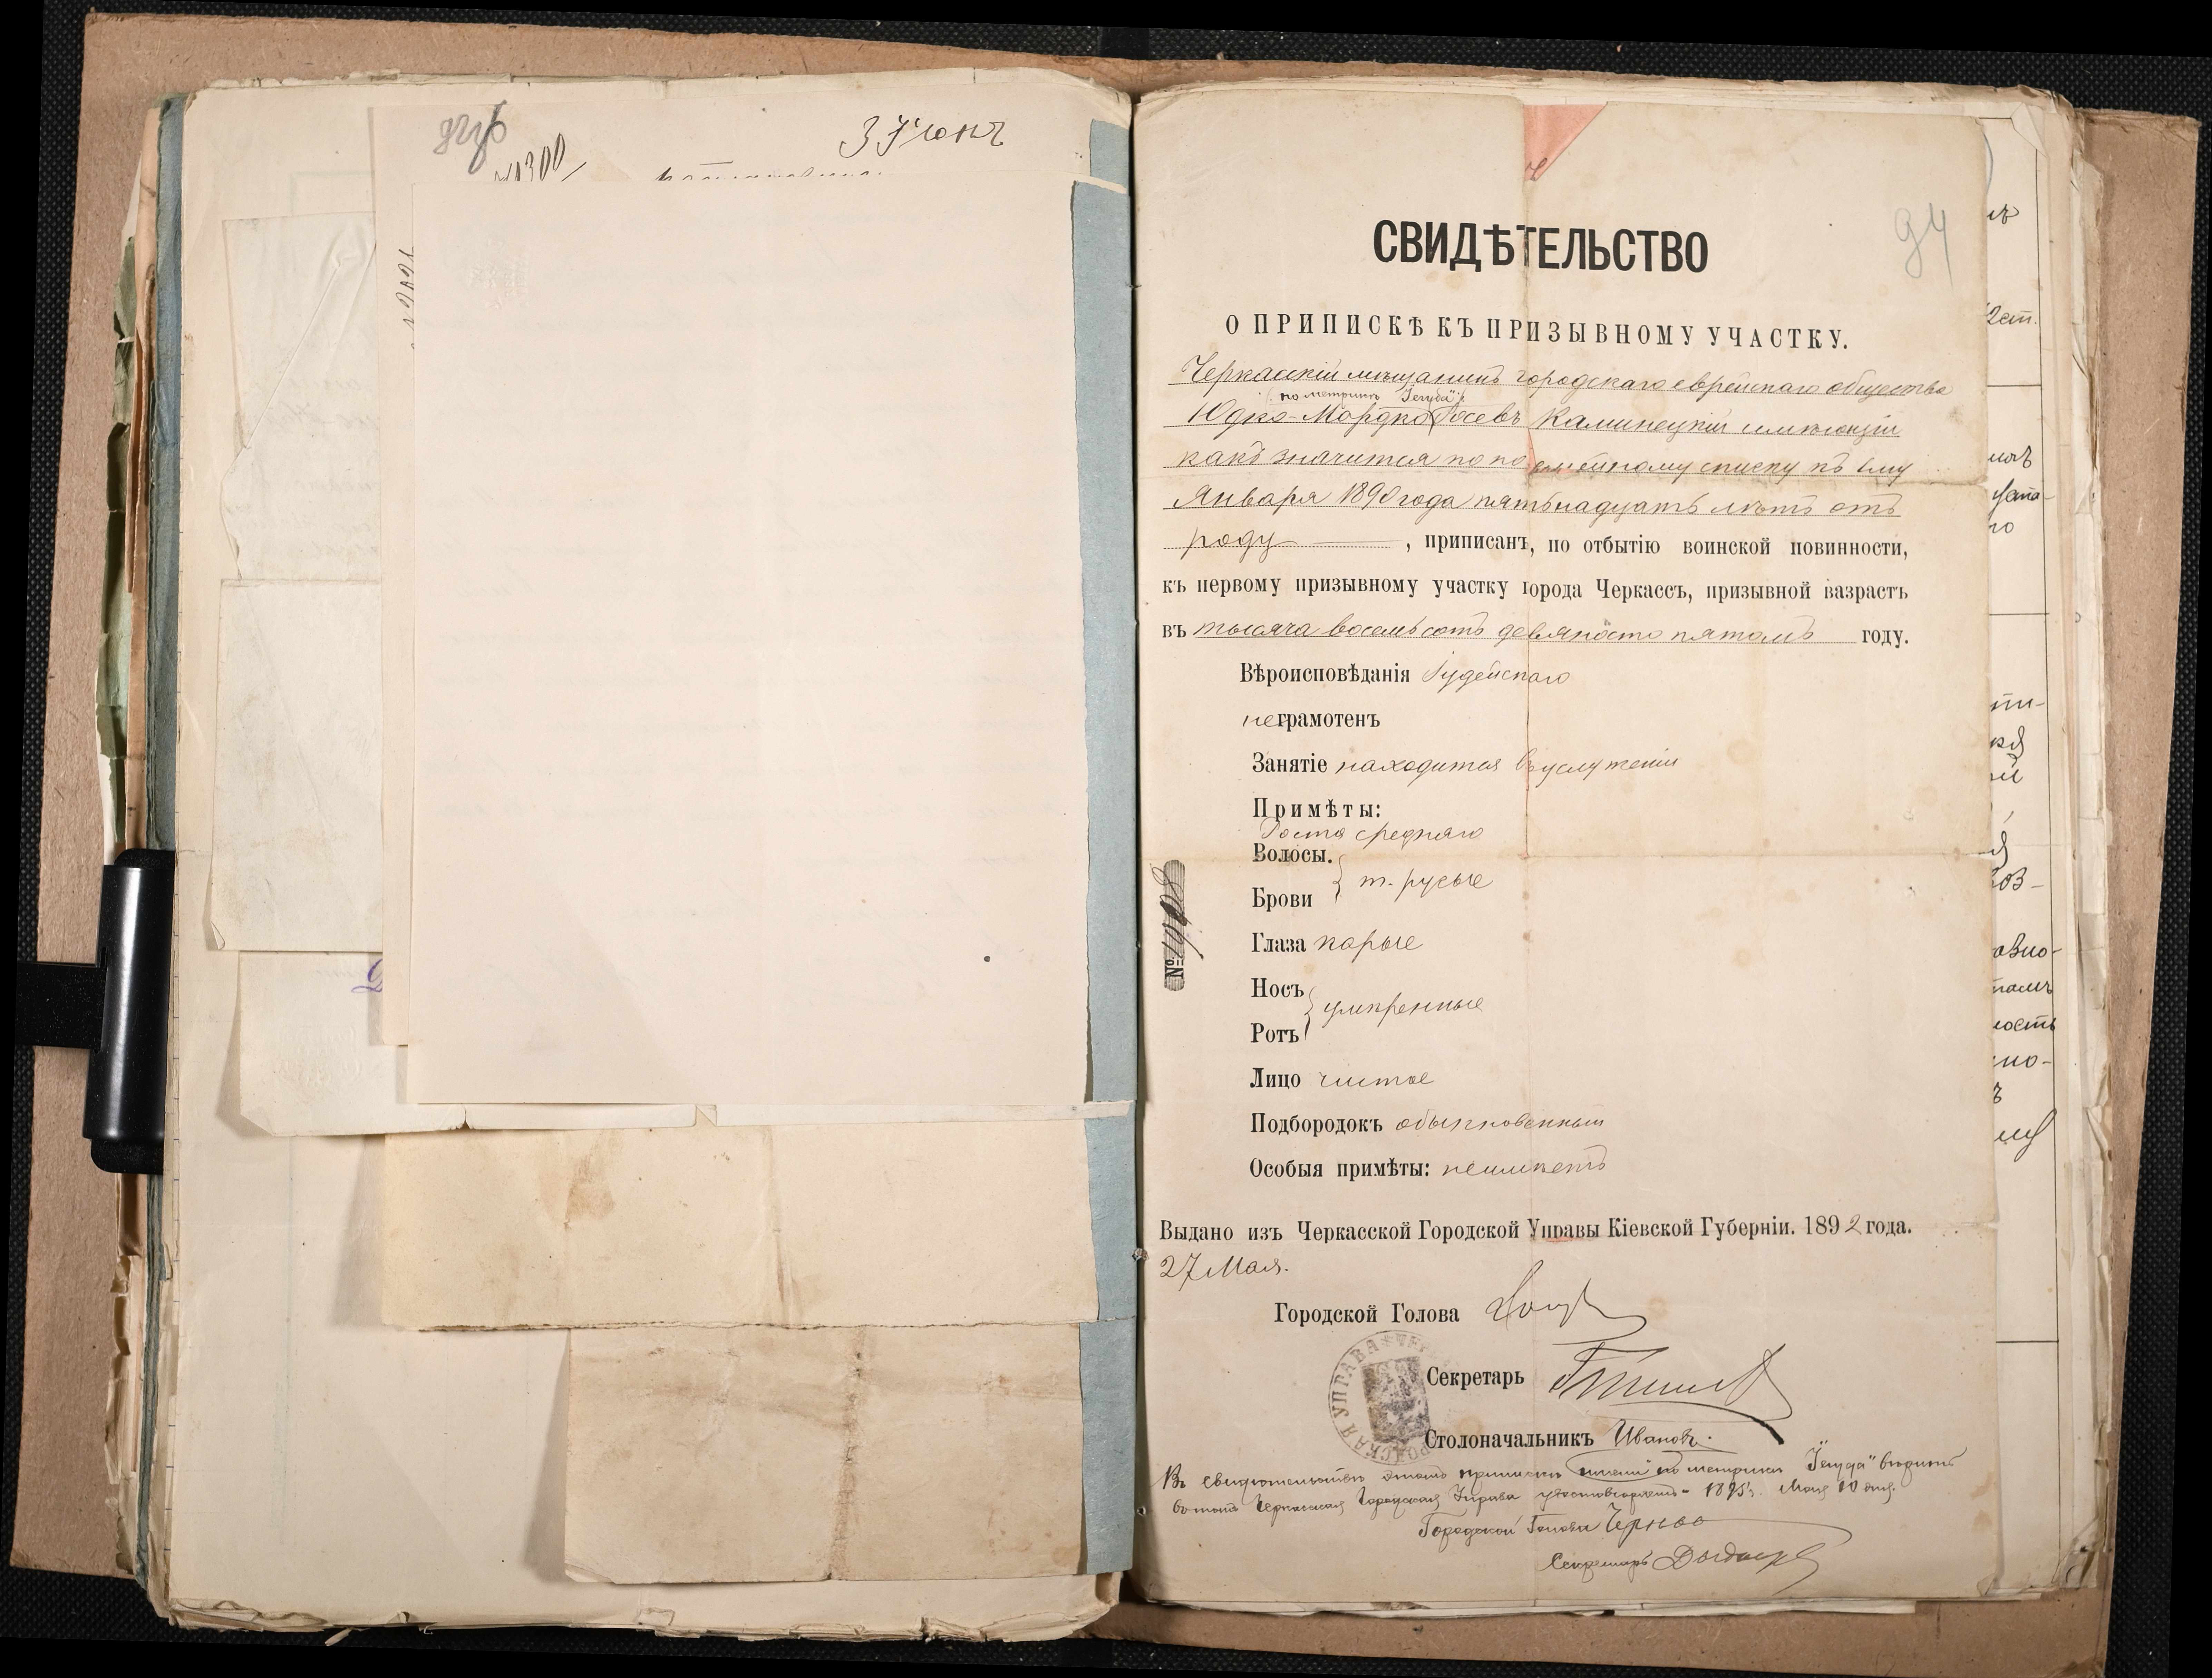 3 Іюня
№ 1300
94
СВИДѢТЕЛЬСТВО
О ПРИПИСКѢ КЪ ПРИЗЫВНОМУ УЧАСТКУ.
Черкасскій мѣщанинъ городскаго еврейскаго общества
(по метрикѣ "Іегуда")
Юдко-Мордко Іосевъ Каминецкій имѣющій
какъ значится по посемейному списку къ 1му
Января 1890 года пятьнадцать лѣтъ отъ
роду, приписанъ, по отбытію воинской повинности,
къ первому призывному участку города Черкассъ, призывной вазрастъ
въ тысяча восемьсотъ девяносто пятомъ году.
Вѣроисповѣданія Іудейскаго
неграмотенъ
Занятіе находится въ услуженіи
Примѣты:
Роста средняго
Волосы.
т. русые
Брови
Глаза карые
Носъ
умѣренные
Ротъ
Лицо чистое
Подбородокъ обыкновенный
Особыя примѣты: неимѣетъ
Выдано изъ Черкасской Городской Управы Кіевской Губерніи. 1892 года.
27 Мая.
Городской Голова
Секретарь
УПРАВА
Столоначальникъ Ивановъ.
Въ свидѣтельствѣ этомъ припискѣ по метрикѣ "Іегуда" вѣрить
въ томъ Черкасская Городская Управа удостовѣряетъ - 1895 г. Мая 10 дня.
Городской Голова
Секретарь